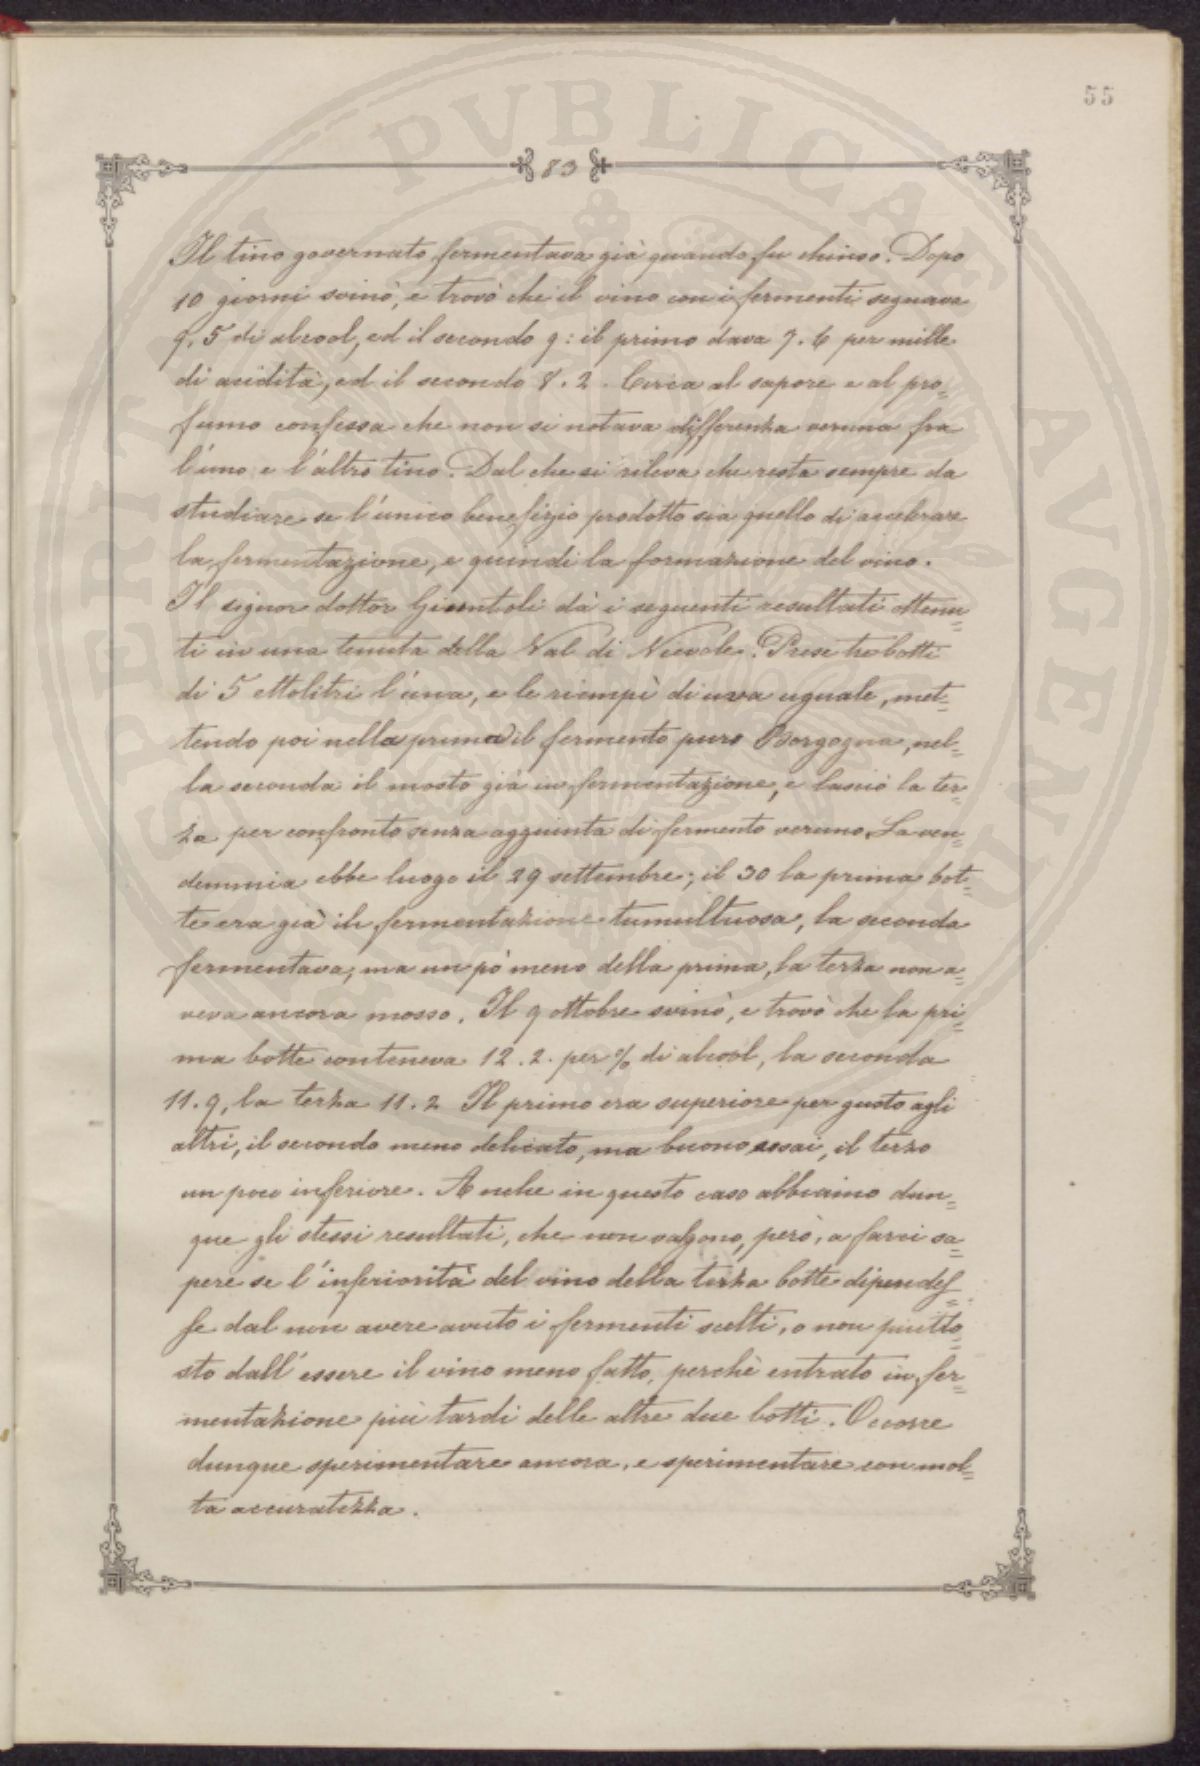 55
83
Il tino governato fermentava già quando fu chiuso. Dopo
10 giorni svinò, e trovò che il vino con i fermenti segnava
9,5 di alcool, ed il secondo 9: il primo dava 7.6 per mille
di acidità, ed il secondo 8.2. Circa al sapore e al pro=
fumo confessa che non si notava differenza veruna fra
l'uno e l'altro tino. Dal che si rileva che resta sempre da
studiare se l'unico benefizio prodotto sia quello di accelerare
la fermentazione, e quindi la formazione del vino.
Il signor dottor Giuntoli dà i seguenti resultati ottenu=
ti in una tenuta della Val di Nievole. Prese tre botti
di 5 ettolitri l'una, e le riempì di uva uguale, met=
tendo poi nella prima il fermento puro Borgogna, nel=
la seconda il mosto già in fermentazione, e lasciò la ter=
za per confronto senza aggiunta di fermento veruno. La ven=
demmia ebbe luogo il 29 settembre; il 30 la prima bot=
te era già in fermentazione tumultuosa, la seconda
fermentava, ma un pò meno della prima, la terza non a=
veva ancora mosso. Il 9 ottobre svinò, e trovò che la pri=
ma botte conteneva 12.2. per % di alcool, la seconda
11.9, la terza 11.2 Il primo era superiore per gusto agli
altri, il secondo meno delicato, ma buono assai, il terzo
un poco inferiore. Anche in questo caso abbiamo dun=
que gli stessi resultati, che non valgono, però, a farci sa=
pere se l'inferiorità del vino della terza botte dipendes=
se dal non avere avuto i fermenti scelti, o non piutto=
sto dall'essere il vino meno fatto, perchè entrato in fer=
mentazione più tardi delle altre due botti. Occorre
dunque sperimentare ancora, e sperimentare con mol=
ta accuratezza.